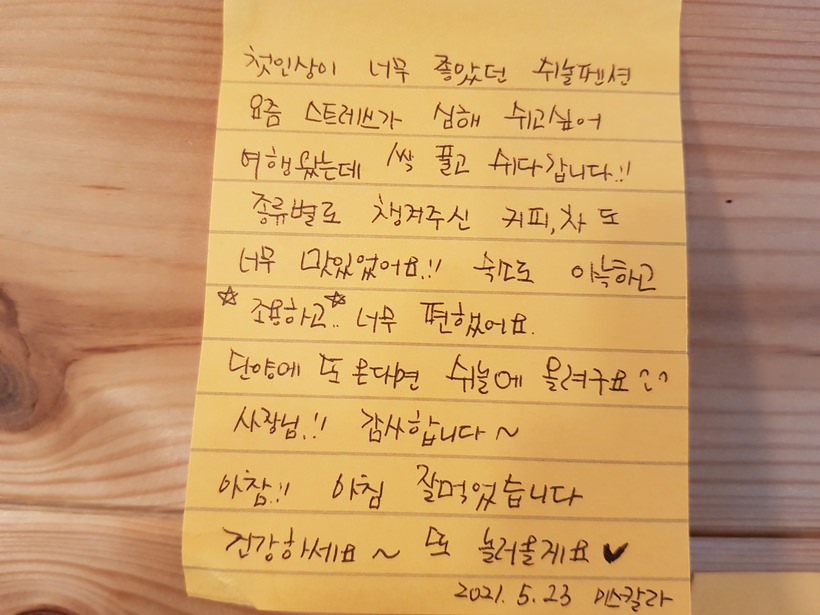 첫인상이 너무 좋았던 쉬눌펜션
요즘 스트레스가 심해 쉬고싶어
여행왔는데 싹 풀고 쉬다갑니다!!
종류별로 챙겨주신 커피,차 또
너무 맛있었어요!! 숙소도 아늑하고
☆조용하고☆.. 너무 편했어요.
단양에 또 온다면 쉬눌에 올려구요^^
사장님!! 감사합니다~
아참!! 아침 잘먹었습니다
건강하세요~ 또 놀러올게요♥
2021. 5. 23 미스칼라